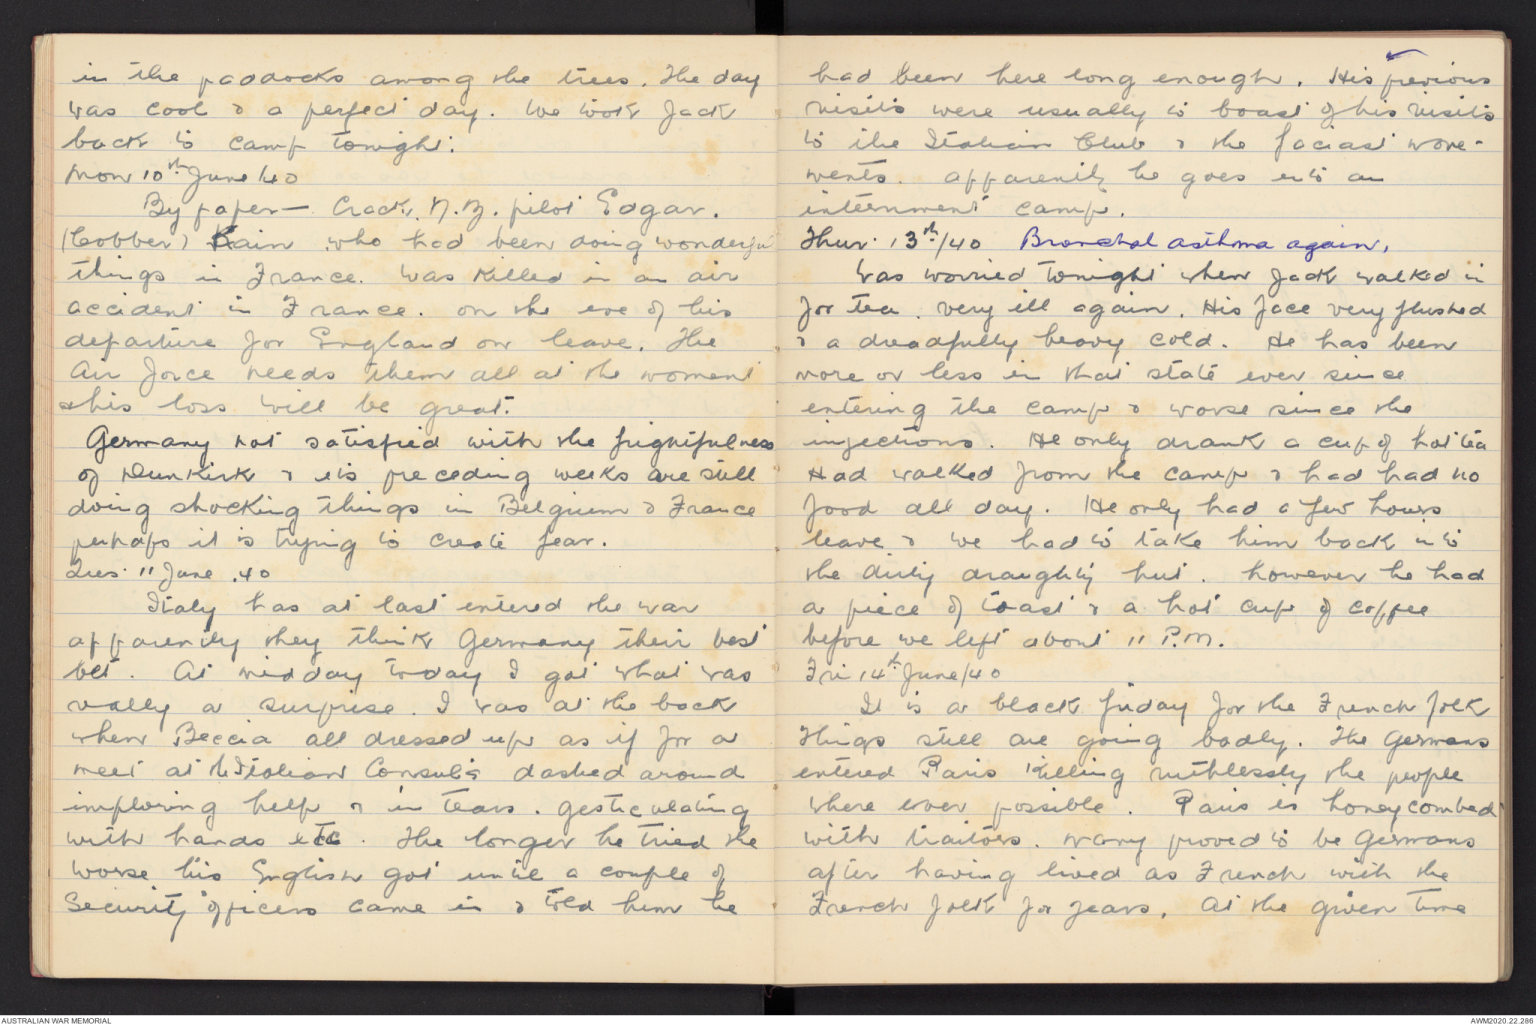 in the paddocks among the trees. The day
was cool & a perfect day. We took Jack
back to camp tonight.
Mon 10th June/40
By paper— Crack, N.Z. pilot Edgar.
(Cobber) Kain who had been doing wonderful
things in France. was killed in an air
accident in France. on the eve of his
departure for England on leave. The
Air force needs them all at the moment
& his loss will be great.
Germany not satisfied with the frightfulness
of Dunkirk & its preceding weeks are still
doing shocking things in Belgium & France
perhaps it is trying to create fear.
Tues. 11 June .40
Italy has at last entered the war
apparently they think Germany their best
bet. At midday today I got what was
really a surprise. I was at the back
when Beccia all dressed up as if for a
meet at th Italian Consul's dashed around
imploring help & in tears. gesticulating
with hands etc. The longer he tried the
worse his English got until a couple of
Security officers came in & told him he
had been here long enough. His previous
visits were usually to boast of his visits
to the Italian Club & the faciast move-
ments. apparently he goes into an
internment camp.
Thur. 13th/40 Bronchal asthma again.
Was worried tonight when Jack walked in
for tea. very ill again. His face very flushed
& a dreadfully heavy cold. He has been
more or less in that state ever since
entering the camp & worse since the
injections. He only drank a cup of hot tea
Had walked from the camp & had had no
food all day. He only had a few hours
leave & we had to take him back into
the dirty draughty hut. however he had
a piece of toast & a hot cup of coffee
before we left about 11 P.M.
Fri 14th June/40
It is a black friday for the French folk
Things still are going badly. The Germans
entered Paris killing ruthlessly the people
where ever possible. Paris is honeycombed
with traitors. many proved to be Germans
after having lived as French with the
French folk for years. At the given time
AUSTRALIAN WAR MEMORIAL
AWM2020.22.286